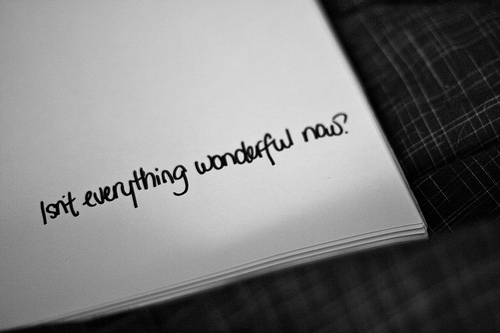 Isn't everything wonderful now?